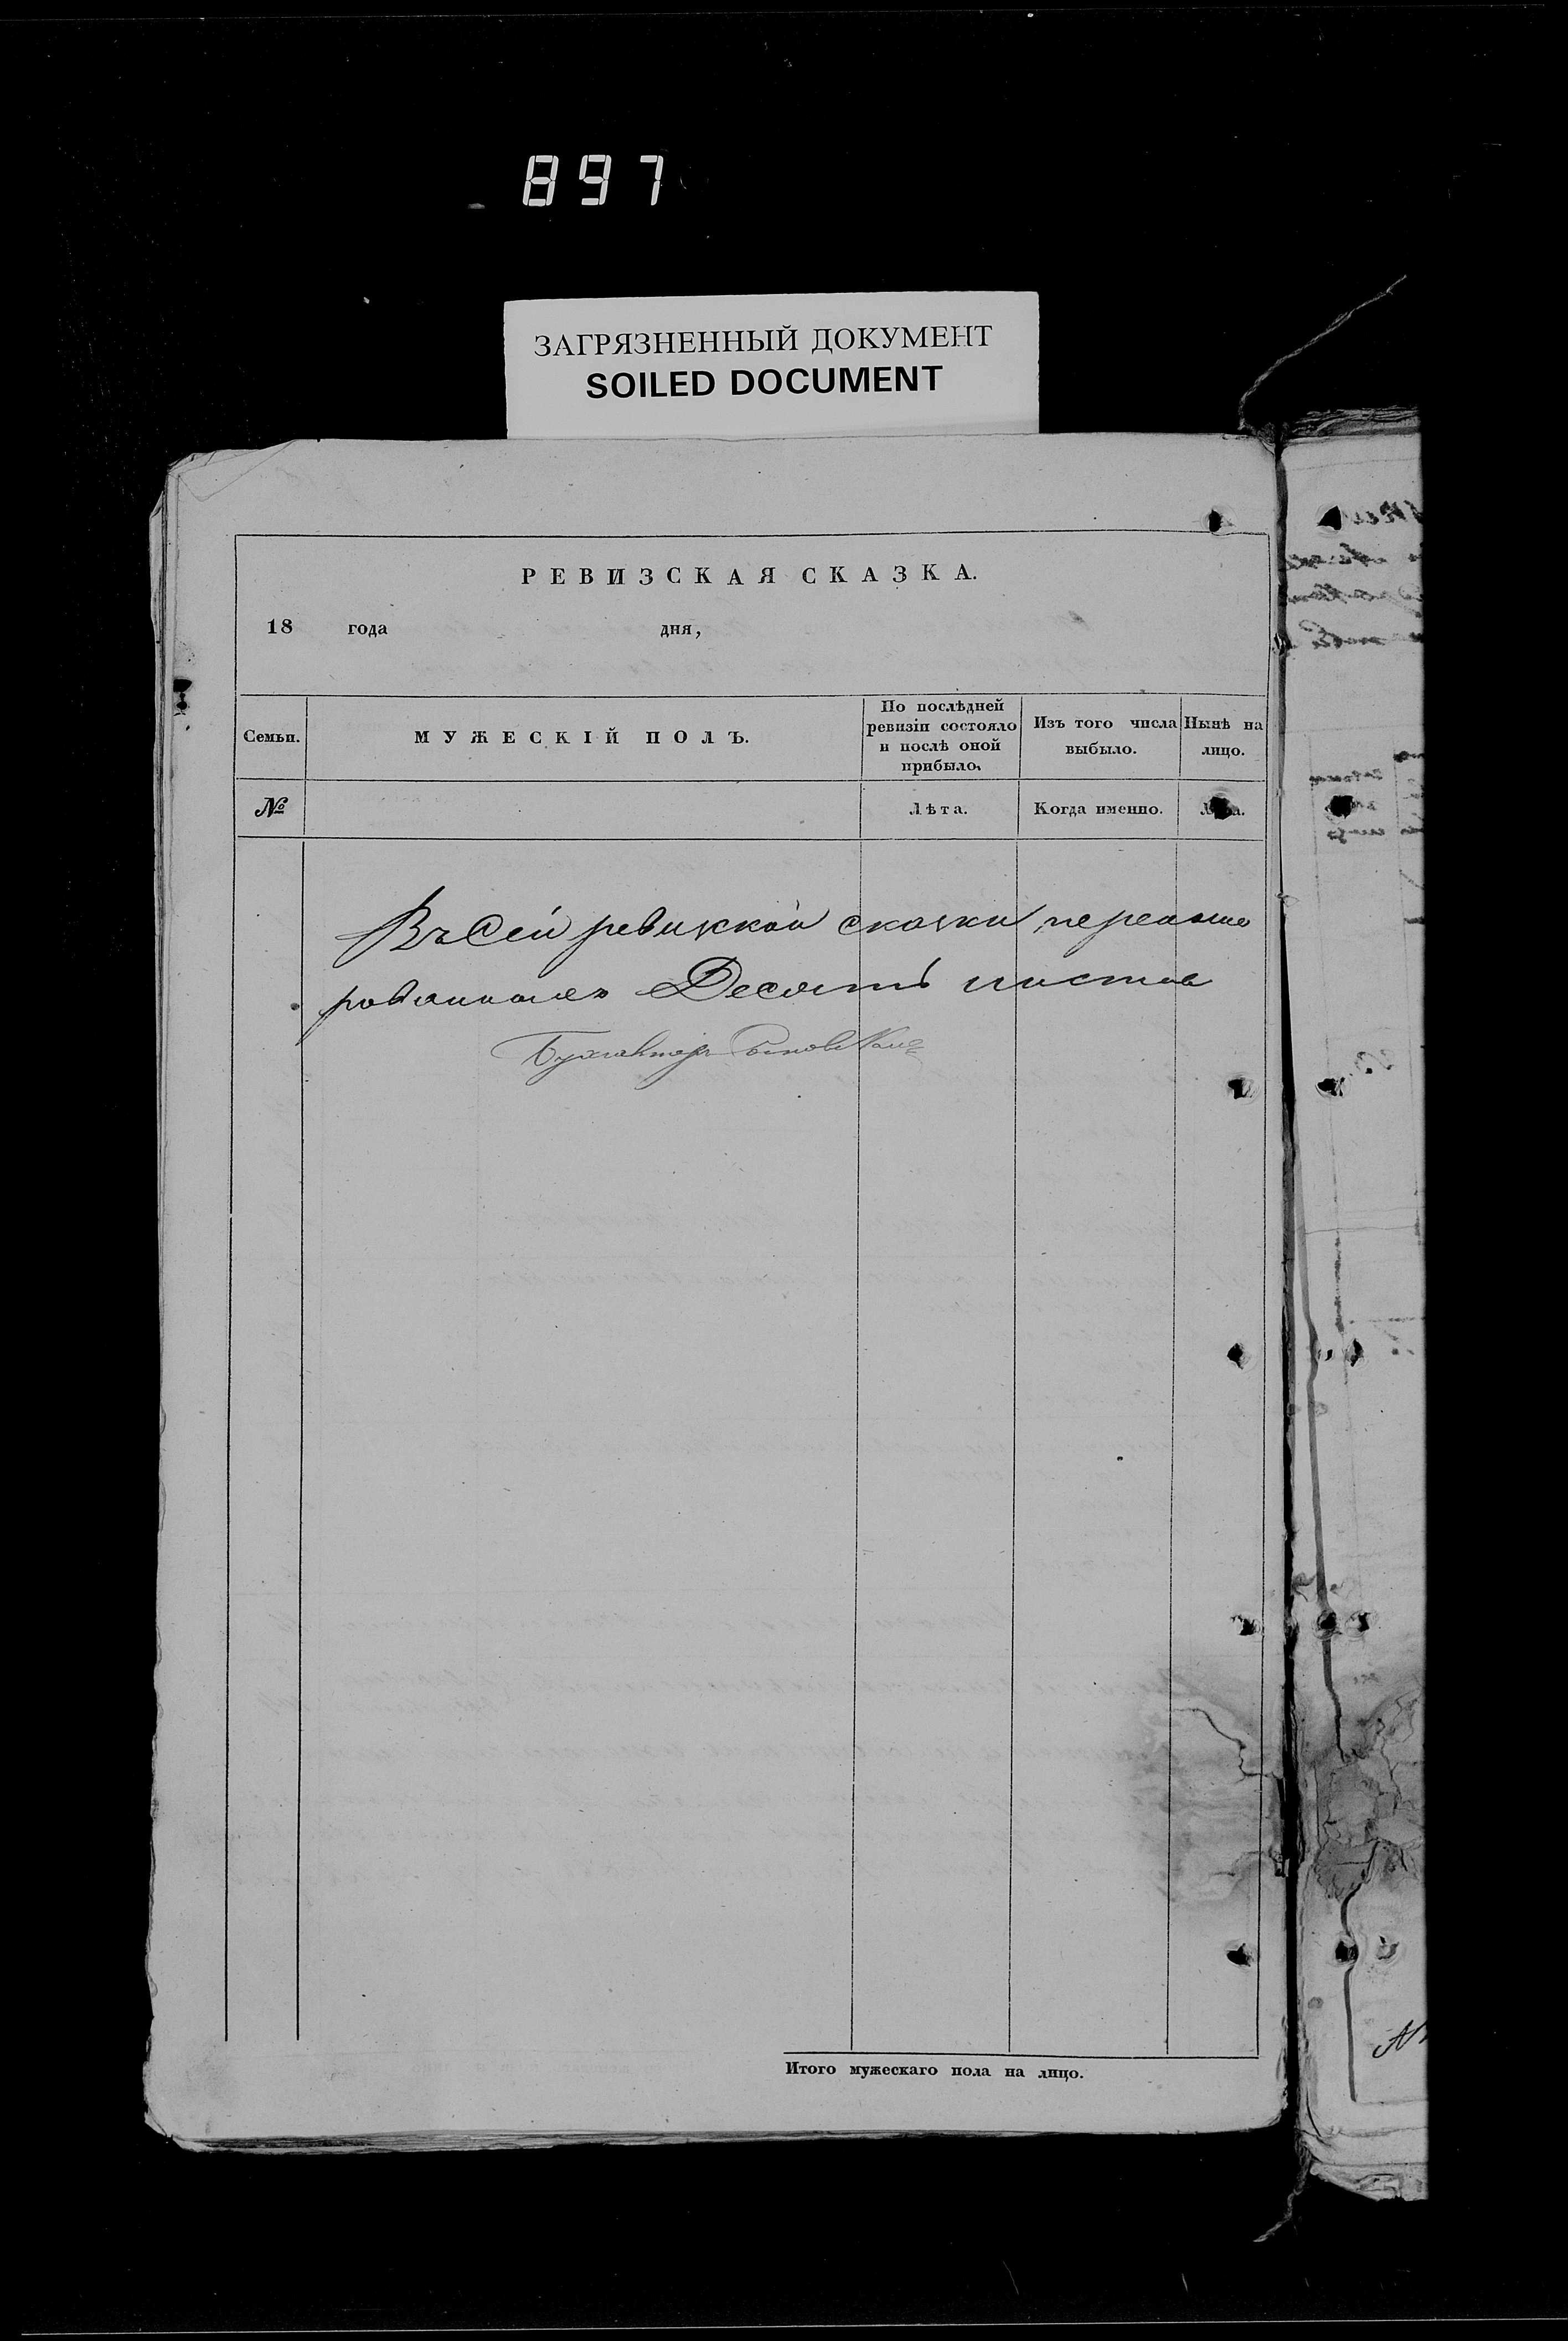 897
ЗАГРЯЗНЕННЫЙ ДОКУМЕНТ
SOILED DOCUMENT
РЕВИЗСКАЯ СКАЗКА.
18 года дня,
Семьи.
МУЖЕСКІЙ ПОЛЪ.
По послѣдней
ревизіи состояло
и послѣ оной
прибыло.
Изъ того числа
выбыло.
Нынѣ на
лицо.
№
Лѣта.
Когда именно.
Лѣта.
Въ Сей ревизкой сказки
Десять листов
Бухгалтеръ
Итого мужескаго пола на лицо.